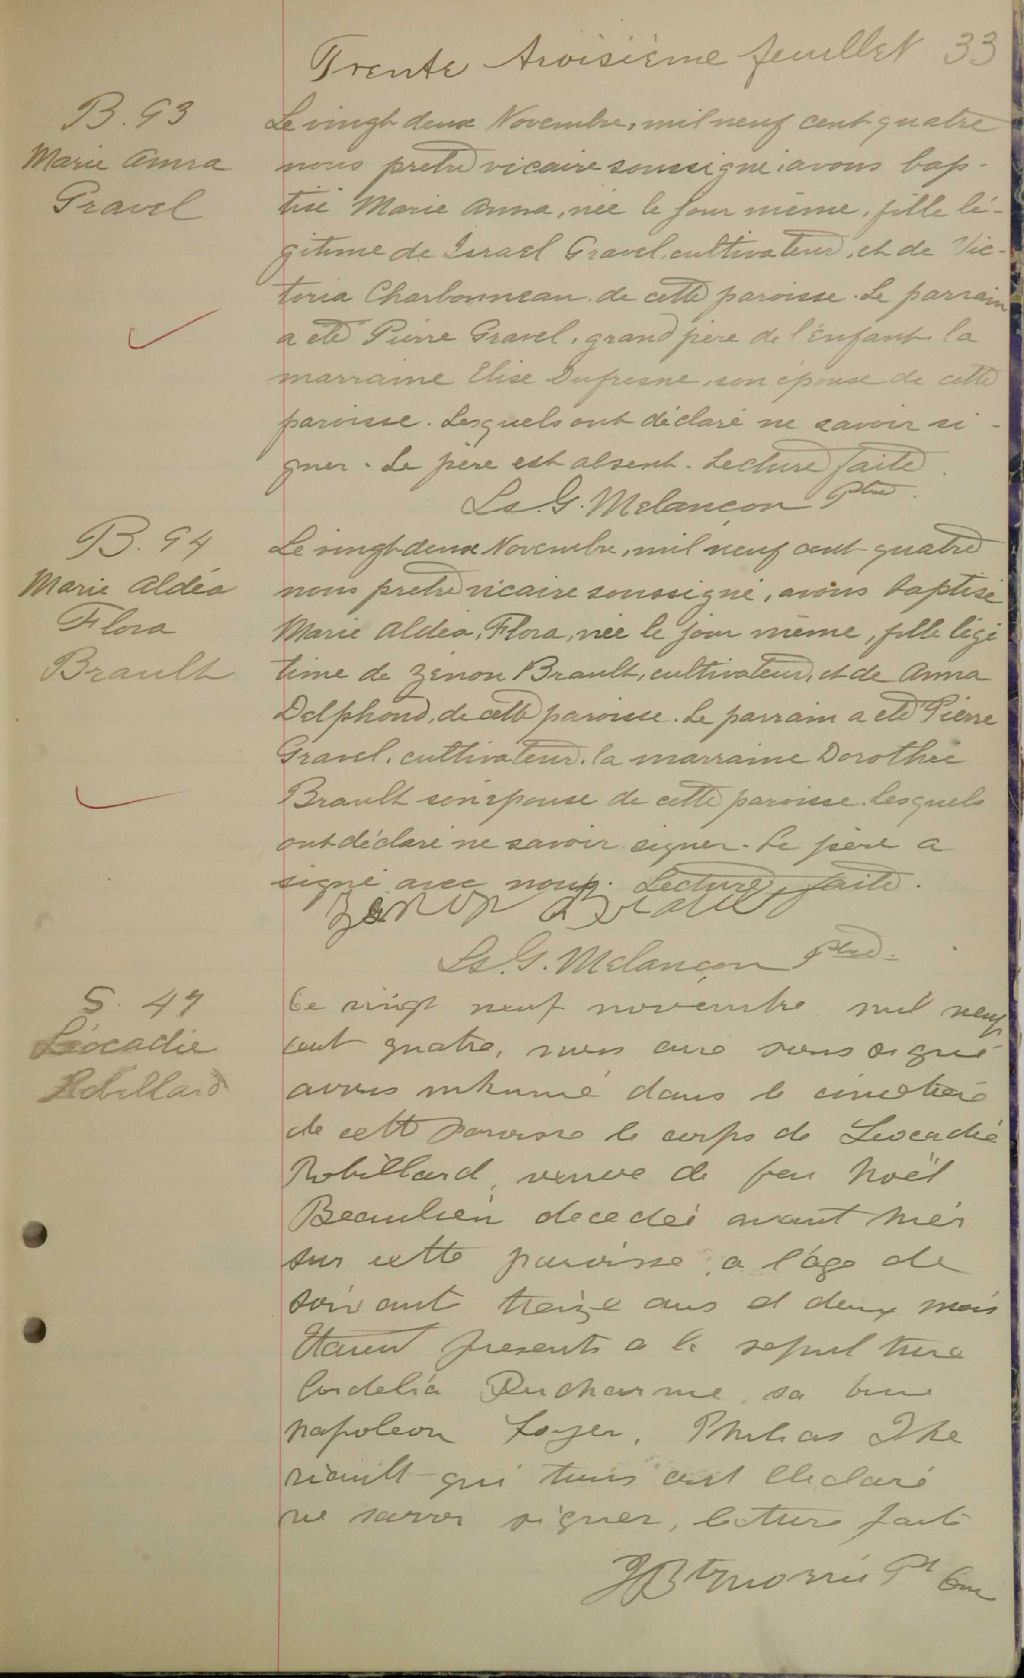 Trente troisième feuillet 33
B. 93
Marie Anna
Gravel
Le vingt-deux Novembre, mil neuf cent quatre
nous prêtre vicaire soussigné, avons bap-
tisé Marie Anna, née le jour même, fille lé-
gitime de Israel Gravel, cultivateur, et de Vic-
toria Charbonneau de cette paroisse. Le parrain
a été Pierre Gravel, grand père de l'enfant la
marraine Elise Dufresne, son épouse de cette
paroisse. Lesquels ont déclaré ne savoir si-
gner. Le père est absent. Lecture faite.
Ls. G. Melançon Ptre.
B. 94
Marie Aldéa
Flora
Brault
Le vingt-deux Novembre, mil neuf cent quatre
nous prêtre vicaire soussigné, avons baptisé
Marie Aldéa, Flora, née le jour même, fille légi
time de Zénon Brault, cultivateur, et de Anna
Delphond, de cette paroisse. Le parrain a été Pierre
Gravel, cultivateur, la marraine Dorothée
Brault son épouse de cette paroisse. Lesquels
ont déclaré ne savoir signer. Le père a
signé avec nous. Lecture faite.
Zenon Brault
Ls. G. Melançon Ptre.
S. 47
Léocadie
Robillard
Ce vingt neuf novembre mil neuf
cent quatre, nous curé sous signé
avons inhumé dans le cimetière
de cette paroisse le corps de Léocadie
Robillard, veuve de feu Noël
Beaulieu décédée avant hier
sur cette paroisse a l'age de
soixante treize ans et deux mois
Etaient presents a la sepulture
Cordelia Ducharme, sa
Napoleon Loyer, Philias The
riault qui tous ont declaré
ne savoir signer, lecture faite
JBt Morin Pt Curé